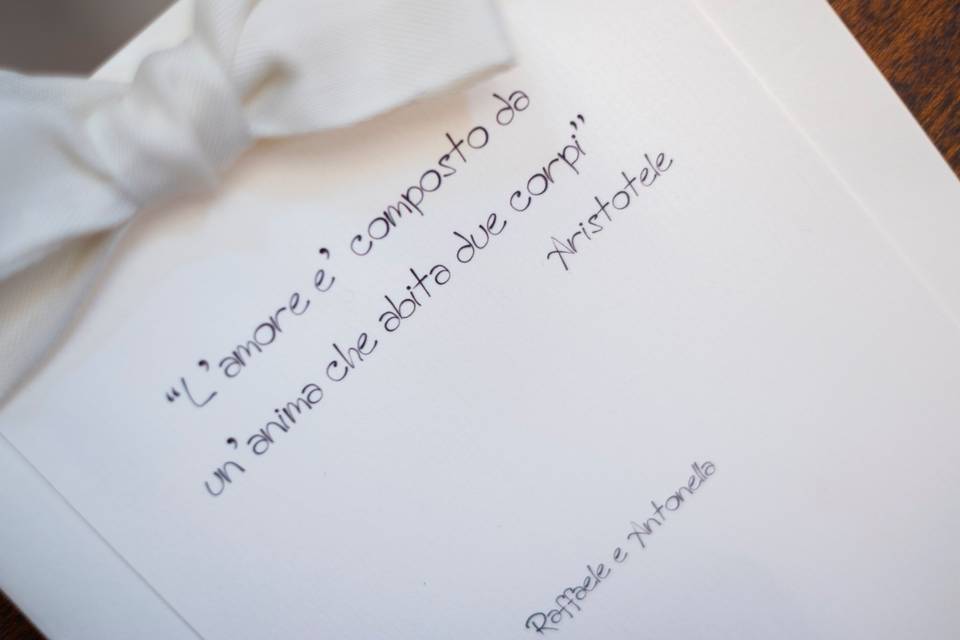 “L’amore e’ composto da
un’anima che abita due corpi”
Aristotele
Raffaele e Antonella